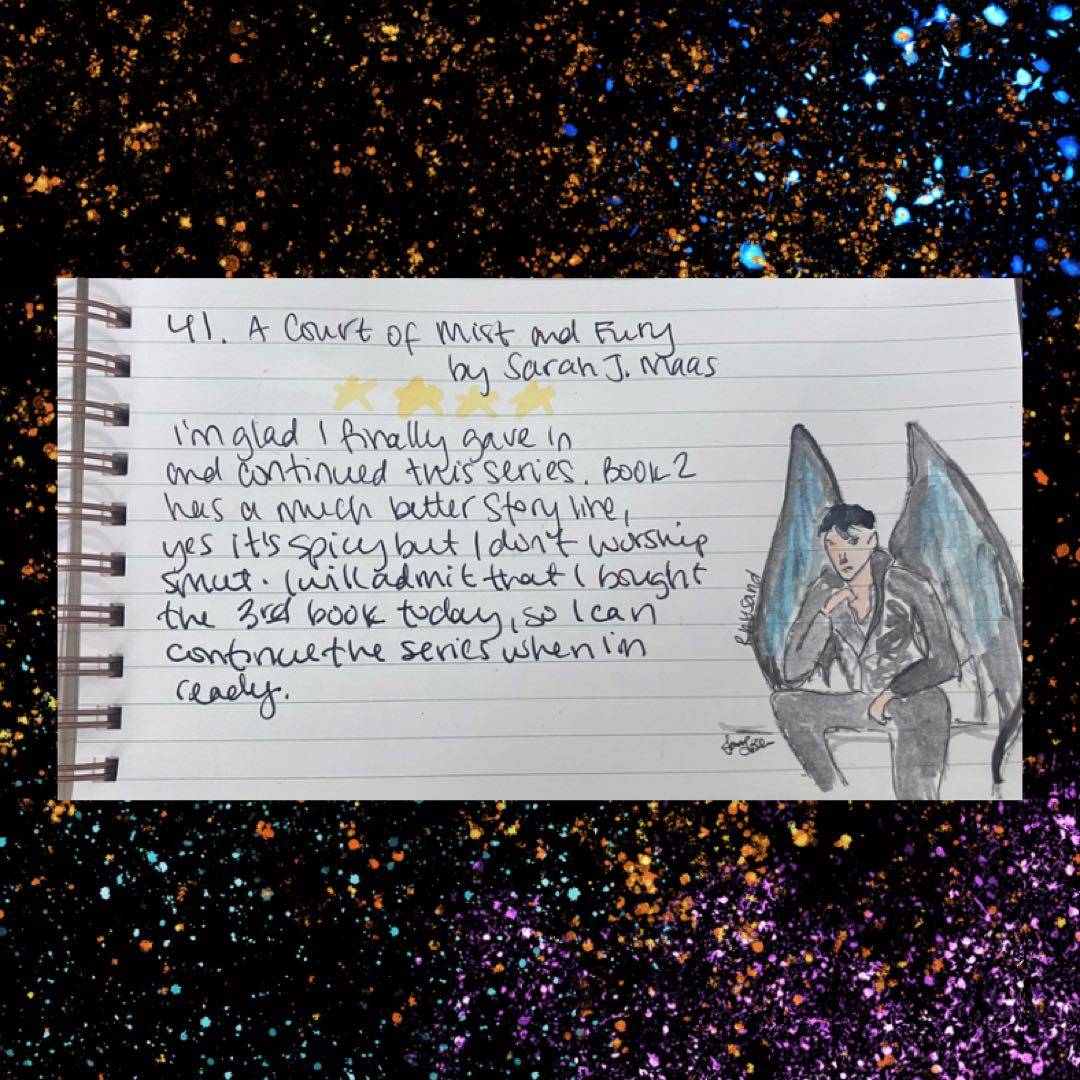 41. A Court of Mist and Fury
by Sarah J. Maas
i'm glad I finally gave in
and continued this series. Book 2
has a much better story line,
yes it's spicy but I don't worship
smut. I will admit that I bought
the 3rd book today, so I can
continue the series when i'm
ready.
Rhysand